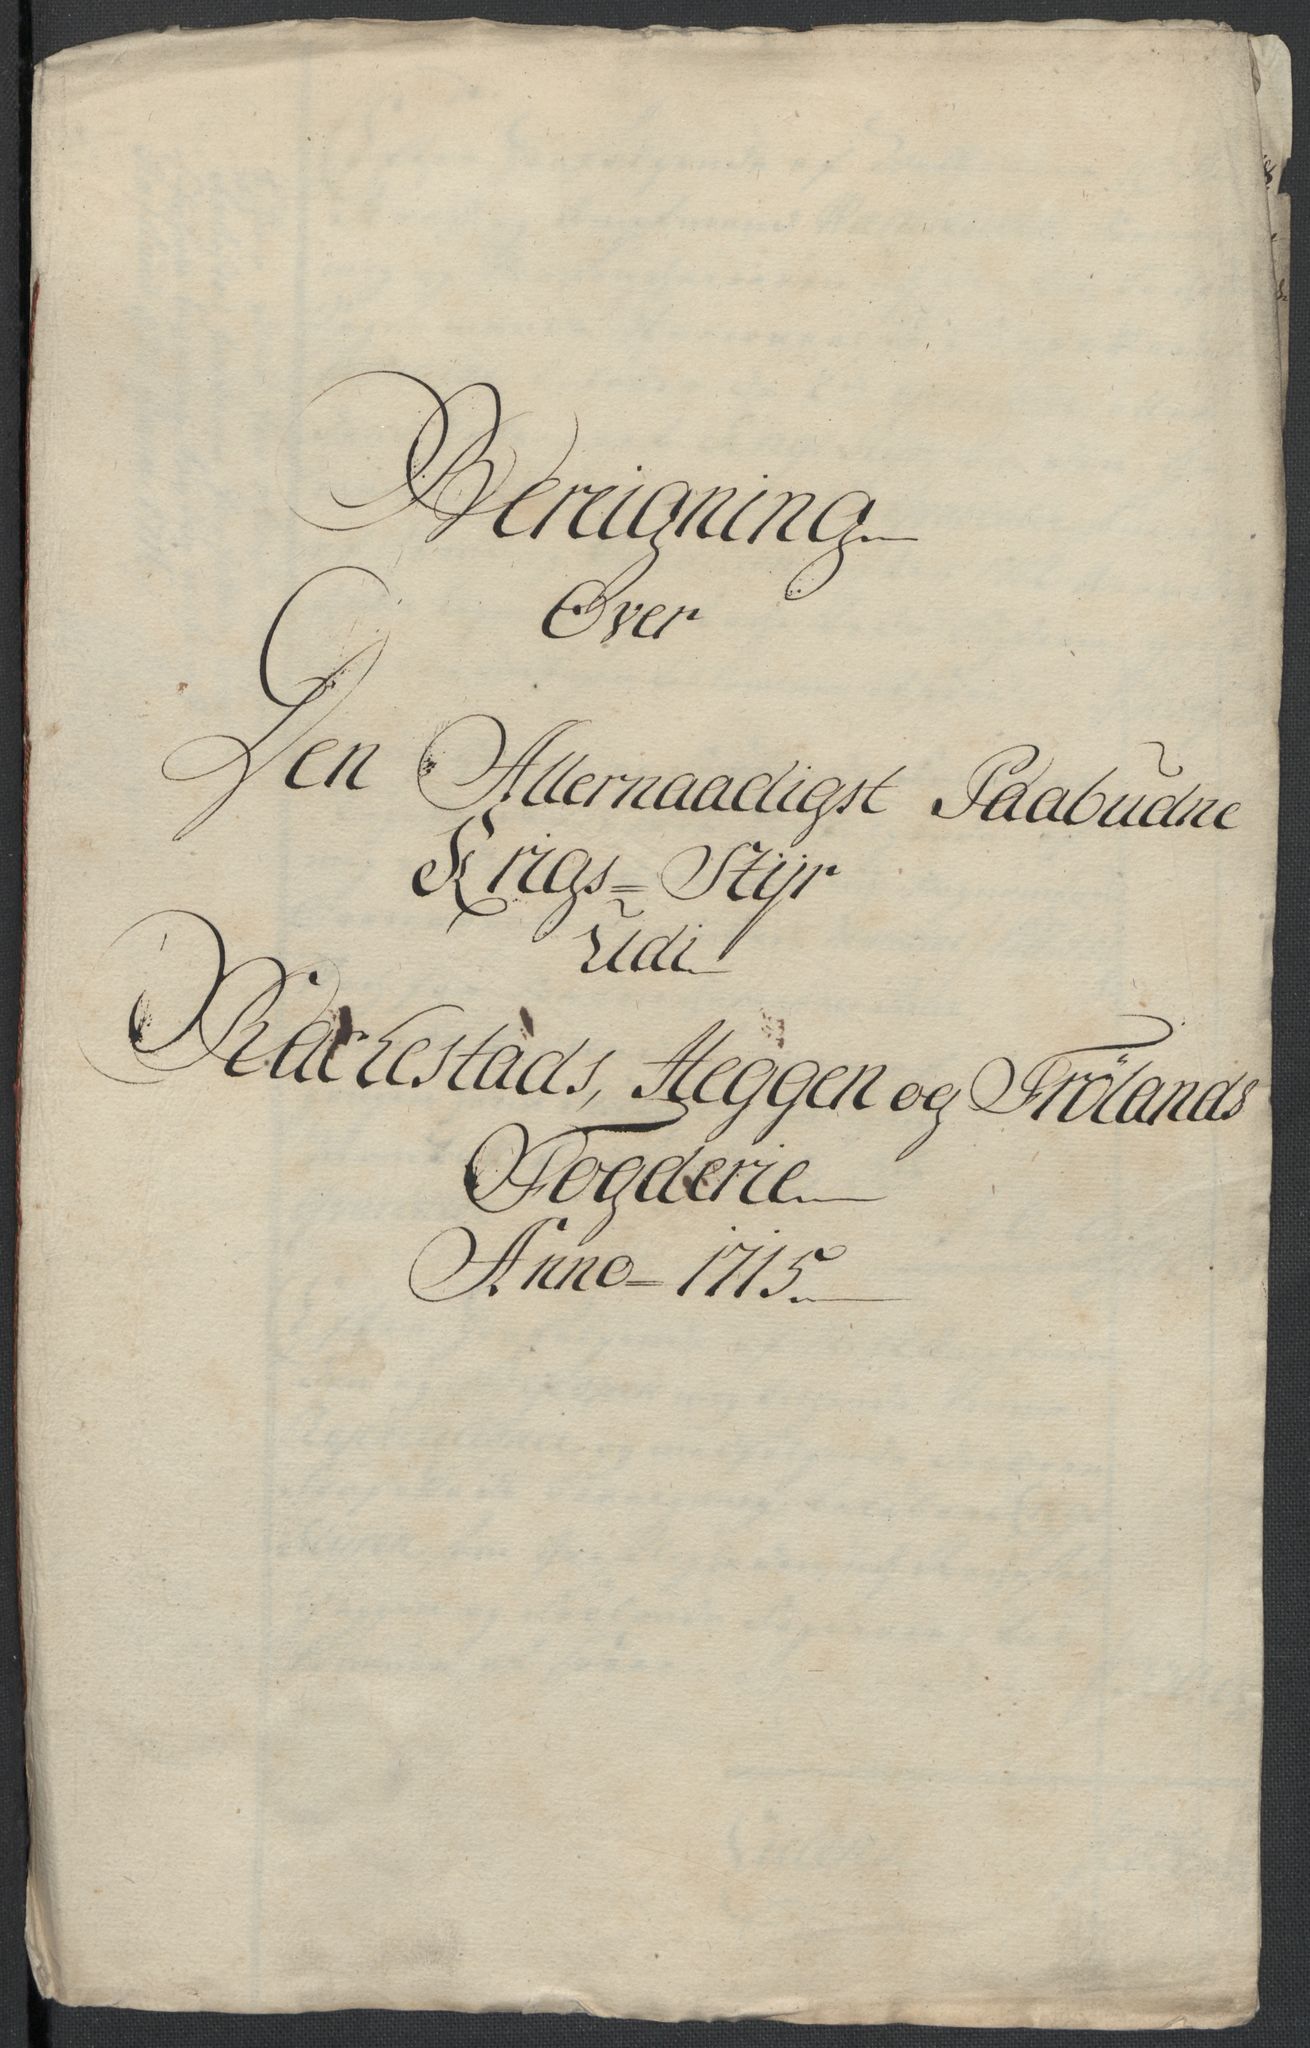 Bereigning
Over
Den Allernaadigst Paabudne
Krigs= Stijr
Udi
Rackestads, Heggen og Frölands
Fogderie
Anno= 1715